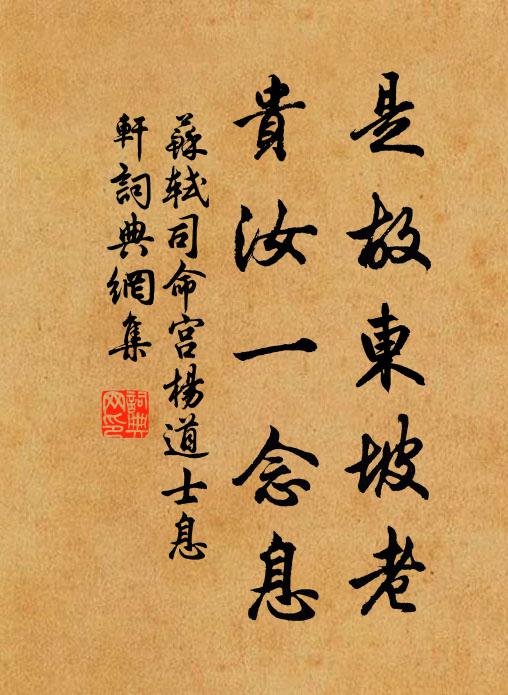 是故東坡老
貴汝一念息
蘇軾司命宮楊道士息
軒詞典網集
詞典
网印